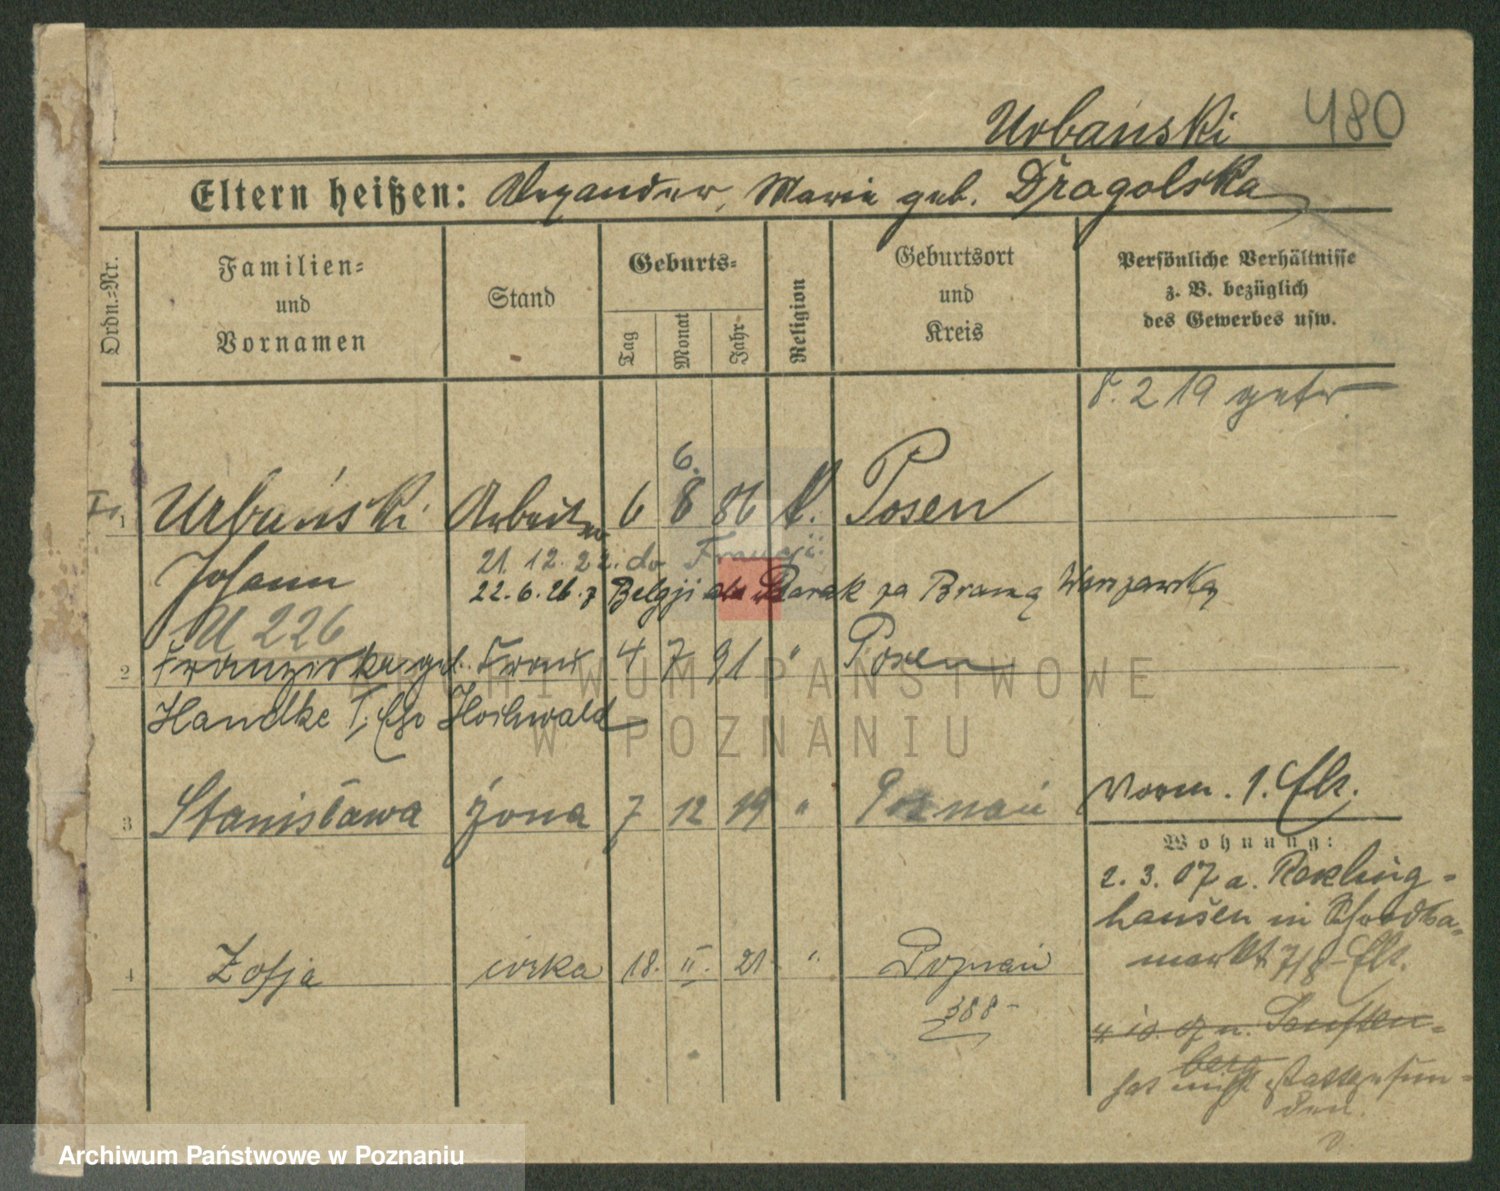 Urbański 480
Eltern heißen: Alexander, Marie geb. Dragolska
Ordn.-Nr.
Familien-
und
Vornamen
Stand
Geburts-
Tag
Monat
Jahr
Religion
Geburtsort
und
Kreis
Persönliche Verhältnisse
z. B. bezüglich
des Gewerbes usw.
8. 2 19 getr.
6.
1 Urbański Arbeiter 6 8 86 k. Posen
21. 12. 22. do Francji
Johann
22. 6. 26. z Belgji Barak za Bramą Warszawską
U 226
2 Franziska geb. Frau 4 7 91 " Posen
Handke Hochwald
3 Stanisława żona 7 12 19 " Poznań
Vorm. 1.
Wohnung:
2. 3. 07 a. Reckling-
hausen in
markt 7/8
4 Zofja córka 18. II. 21. " Poznań
388-
4. 10. 07 n. Senften-
berg
hat nicht stattgefun-
den.
ARCHIWUM PAŃSTWOWE
W POZNANIU
Archiwum Państwowe w Poznaniu